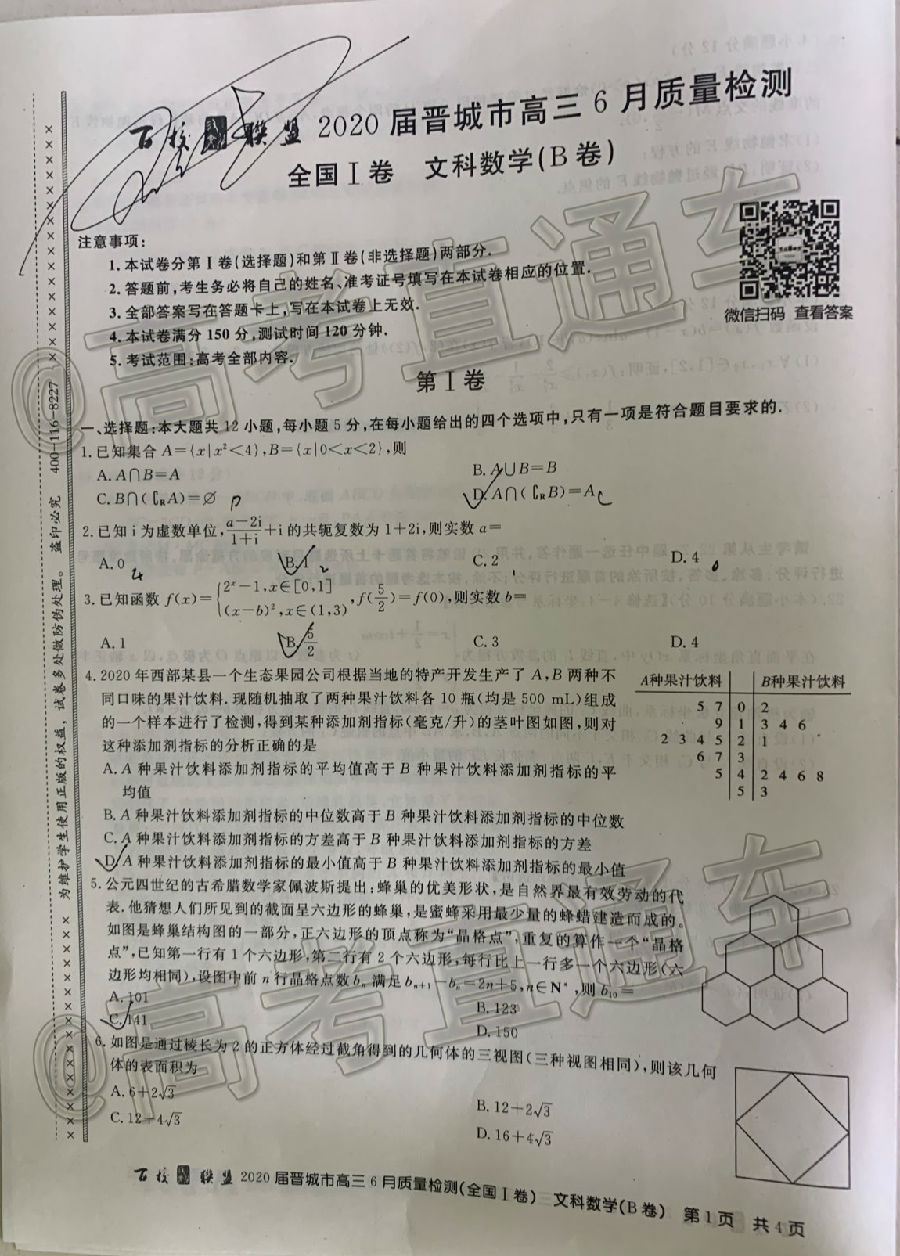 百校联盟 2020届晋城市高三6月质量检测
全国Ⅰ卷 文科数学(B卷)
注意事项:
1.本试卷分第Ⅰ卷(选择题)和第Ⅱ卷(非选择题)两部分.
2.答题前,考生务必将自己的姓名、准考证号填写在本试卷相应的位置.
3.全部答案写在答题卡上,写在本试卷上无效.
4.本试卷满分150分,测试时间120分钟.
5.考试范围:高考全部内容.
微信扫码 查看答案
第Ⅰ卷
一、选择题:本大题共12小题,每小题5分,在每小题给出的四个选项中,只有一项是符合题目要求的.
1.已知集合A={x|x²<4},B={x|0<x<2},则
A.A∩B=A B.A∪B=B
C.B∩(∁RA)=∅ D.A∩(∁RB)=A
2.已知i为虚数单位,(a-2i)/(1+i)+i的共轭复数为1+2i,则实数a=
A.0 B.1 C.2 D.4
3.已知函数f(x)={2ˣ-1,x∈[0,1]
(x-b)²,x∈(1,3),f(5/2)=f(0),则实数b=
A.1 B.5/2 C.3 D.4
4.2020年西部某县一个生态果园公司根据当地的特产开发生产了A,B两种不
同口味的果汁饮料.现随机抽取了两种果汁饮料各10瓶(均是500 mL)组成
的一个样本进行了检测,得到某种添加剂指标(毫克/升)的茎叶图如图,则对
这种添加剂指标的分析正确的是
A.A种果汁饮料添加剂指标的平均值高于B种果汁饮料添加剂指标的平
均值
B.A种果汁饮料添加剂指标的中位数高于B种果汁饮料添加剂指标的中位数
C.A种果汁饮料添加剂指标的方差高于B种果汁饮料添加剂指标的方差
D.A种果汁饮料添加剂指标的最小值高于B种果汁饮料添加剂指标的最小值
A种果汁饮料 B种果汁饮料
5 7 0 2
9 1 3 4 6
2 3 4 5 2 1
6 7 3
5 4 2 4 6 8
5 3
5.公元四世纪的古希腊数学家佩波斯提出:蜂巢的优美形状,是自然界最有效劳动的代
表.他猜想人们所见到的截面呈六边形的蜂巢,是蜜蜂采用最少量的蜂蜡建造而成的.
如图是蜂巢结构图的一部分,正六边形的顶点称为“晶格点”,重复的算作一个“晶格
点”,已知第一行有1个六边形,第二行有2个六边形,每行比上一行多一个六边形(六
边形均相同),设图中前n行晶格点数bn满足bn+1-bn=2n+5,n∈N*,则b10=
A.101 B.123
C.141 D.150
6.如图是通过棱长为2的正方体经过截角得到的几何体的三视图(三种视图相同),则该几何
体的表面积为
A.6+2√3 B.12-2√3
C.12+4√3 D.16+4√3
百校联盟 2020届晋城市高三6月质量检测(全国Ⅰ卷) 文科数学(B卷) 第1页 共4页
为维护学生使用正版的权益,试卷多处做防伪处理。 盗印必究 400-116-8227
@高考直通车
@高考直通车